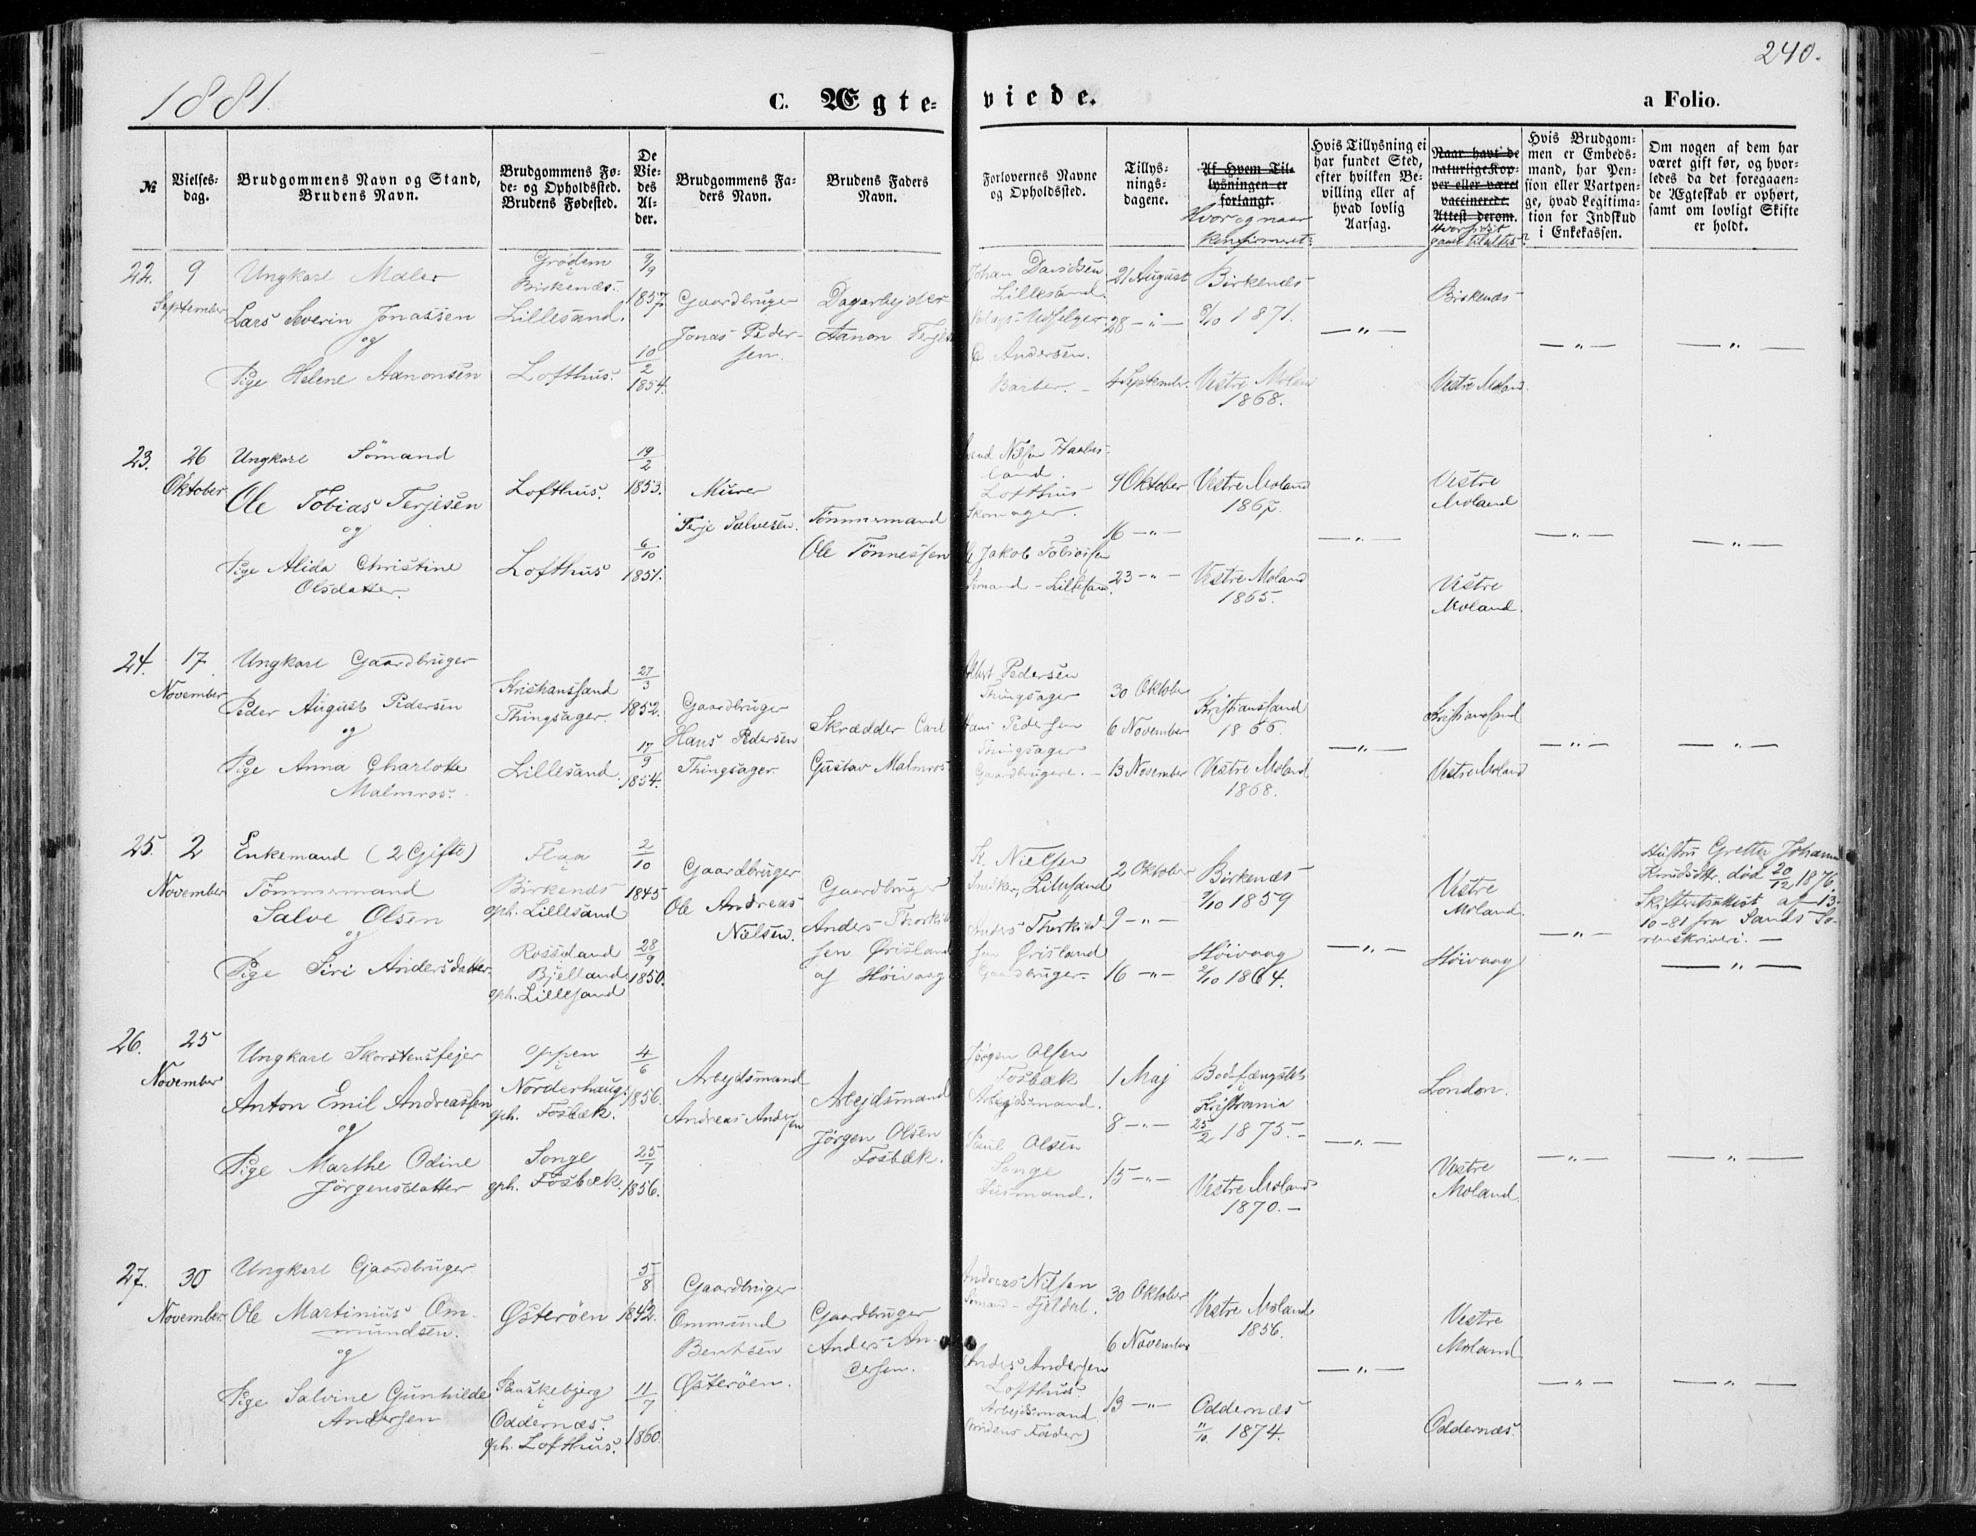 1881.
C. Ægte-
viede.
240.
a Folio.
№
Vielses-
dag.
Brudgommens Navn og Stand,
Brudens Navn.
Brudgommens Fø-
de- og Opholdssted.
Brudens Fødested.
De
Vie-
des
Al-
der.
Brudgommens Fa-
ders Navn.
Brudens Faders
Navn.
Forlovernes Navne
og Opholdssted.
Tillys-
nings-
dagene.
Af Hvem Til-
lysningen er
forlangt.
Hvor og naar
konfirmeret.
Hvis Tillysning ei
har fundet Sted,
efter hvilken Be-
villing eller af
hvad lovlig
Aarsag.
Naar havt de
naturlige Kop-
per eller været
vaccinerede.
Attest derom.
Hvor sidst
Hvis Brudgom-
men er Embeds-
mand, har Pen-
sion eller Vartpen-
ge, hvad Legitima-
tion for Indskud
i Enkekassen.
Om nogen af dem har
været gift før, og hvor-
ledes da det foregaaen-
de Ægteskab er ophørt,
samt om lovligt Skifte
er holdt.
22.
9
September
Ungkarl Maler
Lars Severin Jonassen
og
Pige Helene Aanonsen
Grødem
i
Birkenæs.
Lillesand.
Lofthus.
9/9
1857
10/2
1854.
Gaardbruger
Jonas Peder-
sen.
Dagarbejder
Aanon Terjes
Johan Davidsen
Lillesand.
Andersen.
Barber.
21 August
28 - " -
4 September.
Birkenæs
1871.
Vestre Moland
1868.
— " —
Birkenæs
Vestre Moland.
— " —
— " —
23.
26
Oktober
Ungkarl Sømand
Ole Tobias Terjesen
og
Pige Alida Christine
Olsdatter.
Lofthus.
Lofthus
19/2
1853.
6/10
1851.
Murer
Terje Salvesen.
Tømmermand
Ole Tønnessen
Lofthus
Skomager.
Jakob Tobiassen
Sømand - Lillesand.
9 Oktober
16 - " -
23 - " -
Vestre Moland
1867.
Vestre Moland
1865.
— " —
Vestre
Moland
Vestre
Moland.
— " —
— " —
24.
17
November
Ungkarl Gaardbruger
Peder August Pedersen
og
Pige Anna Charlotte
Malmros.
Kristianssand
Thingsager.
Lillesand.
27/3
1852.
17/9
1854.
Gaardbruger
Hans Pedersen
Thingsager.
Skrædder Carl
Gustav Malmros
Pedersen
Thingsager
Hans Pedersen
Thingsager
Gaardbrugere.
30 Oktober
6 November
13 November
Kristianssand
1866.
Vestre Moland
1868.
— " —
Kristianssand
Vestre Moland
— " —
— " —
25.
2
November
Enkemand (2 Gifte)
Tømmermand
Salve Olsen
og
Pige Siri Andersdatter
Flaa
i
Birkenæs
oph. Lillesand
Rosseland
Bjelland
oph. Lillesand
2/10
1845
28/9
1850.
Gaardbruger
Ole Andreas
Nielsen.
Gaardbruger
Anders Thorkild
sen Ørisland
af Höivaag
K. Nielsen
Snedker, Lillesand
Anders Thorkild-
sen Ørisland
Gaardbruger.
2 Oktober
9 - " -
16 - " -
Birkenæs
1859
Höivaag
2/10 1864.
— " —
Vestre
Moland.
Höivaag
— " —
Hustru Grethe Johanne
Knudsdtr. död 20/12 1876.
Skifteretsattest af 13-
10-81 fra Sands So-
renskriveri. —
— " —
26.
25
November
Ungkarl Skorstensfejer
Anton Emil Andreassen
og
Pige Marthe Odine
Jørgensdatter
Oppen
i
Norderhaug.
oph. Fosbæk.
Songe
oph. Fosbæk.
4/6
1856.
25/7
1856.
Arbejdsmand
Andreas Andersen
Arbejdsmand
Jørgen Olsen
Fosbæk.
Jørgen Olsen
Fosbæk
Arbejdsmand.
Paul Olsen
Songe
Husmand.
1 Maj
8 - " -
15 - " -
Bodsfængslet
i
Kristiania
25/2 1875. -
Vestre Moland
1870. -
— " —
London.
Vestre
Moland.
— " —
— " —
27.
30
November.
Ungkarl Gaardbruger
Ole Martinius Om-
mundsen.
og
Pige Salvine Gunhilde
Andersen
Østerøen
i
Oddernæs.
oph. Lofthus.
5/8
1842.
11/7
1860.
Gaardbruger
Ommund
Bentsen
Østerøen.
Gaardbruger
Anders An-
dersen.
Andreas Nilsen
Sømand - Fjeldal.
Anders Andersen
Lofthus.
Arbejdsmand.
(Brudens Fader)
30 Oktober
6 November
13 - " -
Vestre Moland
1856.
Oddernæs
11/10 1874.
— " —
Vestre
Moland
Oddernæs.
— " —
— " —